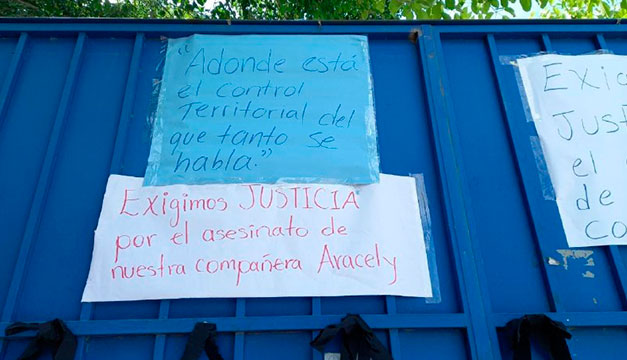 "Adonde está
el control
Territorial del
que tanto se
habla."
Exigimos JUSTICIA
por el asesinato de
nuestra compañera Aracely
Just
el
de